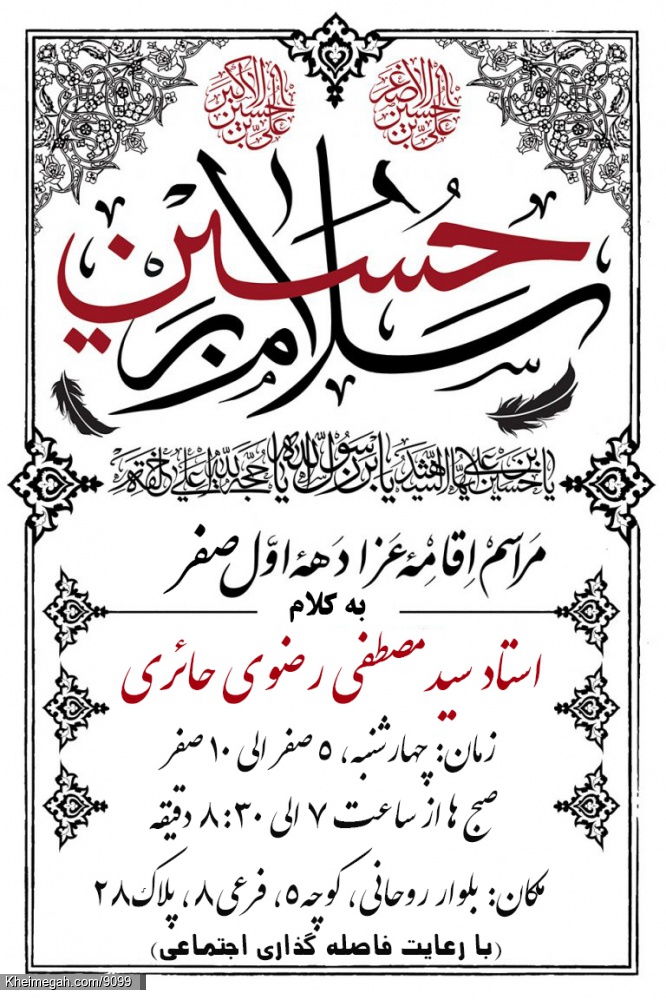 علی بن الحسین الاصغر
علی بن الحسین الاکبر
سلام بر حسین
یا حسین بن علی ایها الشهید یابن رسول الله یا حجة الله علی خلقه
مراسم اِقامهٔ عَزا دَههٔ اوّل صفر
به کلام
استاد سید مصطفی رضوی حائری
زمان: چهارشنبه، ۵ صفر الی ۱۰ صفر
صبح ها از ساعت ۷ الی ۸:۳۰ دقیقه
مکان: بلوار روحانی، کوچه ۵، فرعی ۸، پلاک ۲۸
(با رعایت فاصله گذاری اجتماعی)
Kheimegah.com/9099